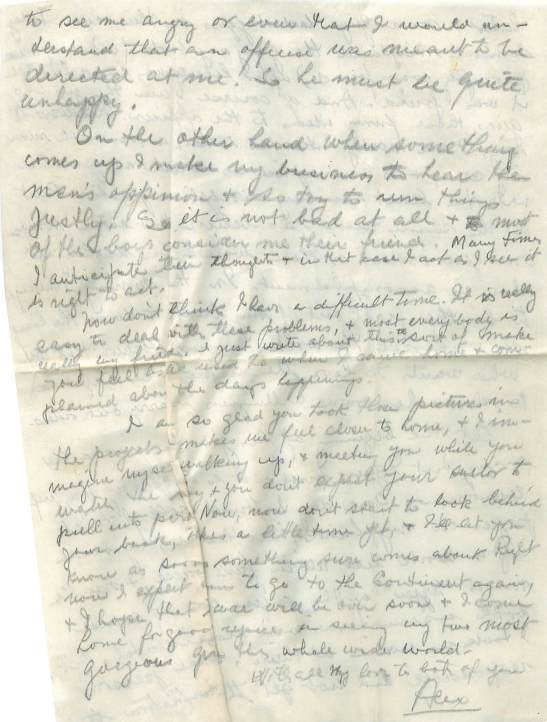 to see me angry or even that I would un-
derstand that an offense was meant to be
directed at me. So he must be quite
unhappy.
On the other hand when something
comes up I make my business to hear the
men's oppinion & so try to run things
justly. So it is not bad at all & most
of the boys consider me their friend. Many times
I anticipate their thoughts & in that case I act as I see it
is right to act.
Now don't think I have a difficult time. It is really
easy to deal with these problems, & most everybody is
really my friend. I just write about this sort of make
you feel as used to when I came home & com-
plained about the days happenings.
I am so glad you took those pictures in
the project makes me feel closer to home, & I im-
magine myself walking up, & meeting you while you
watch the & you don't expect your suitor to
pull into port Now, now don't start to look behind
your back, a little time yet, & I'll let you
know as soon something sure comes about Right
now I expect to go to the Continent again,
& I hope that war will be over soon & I come
home for good rejoice in seeing my two most
gorgeous in the whole wide world -
With all my love to both of you
Alex